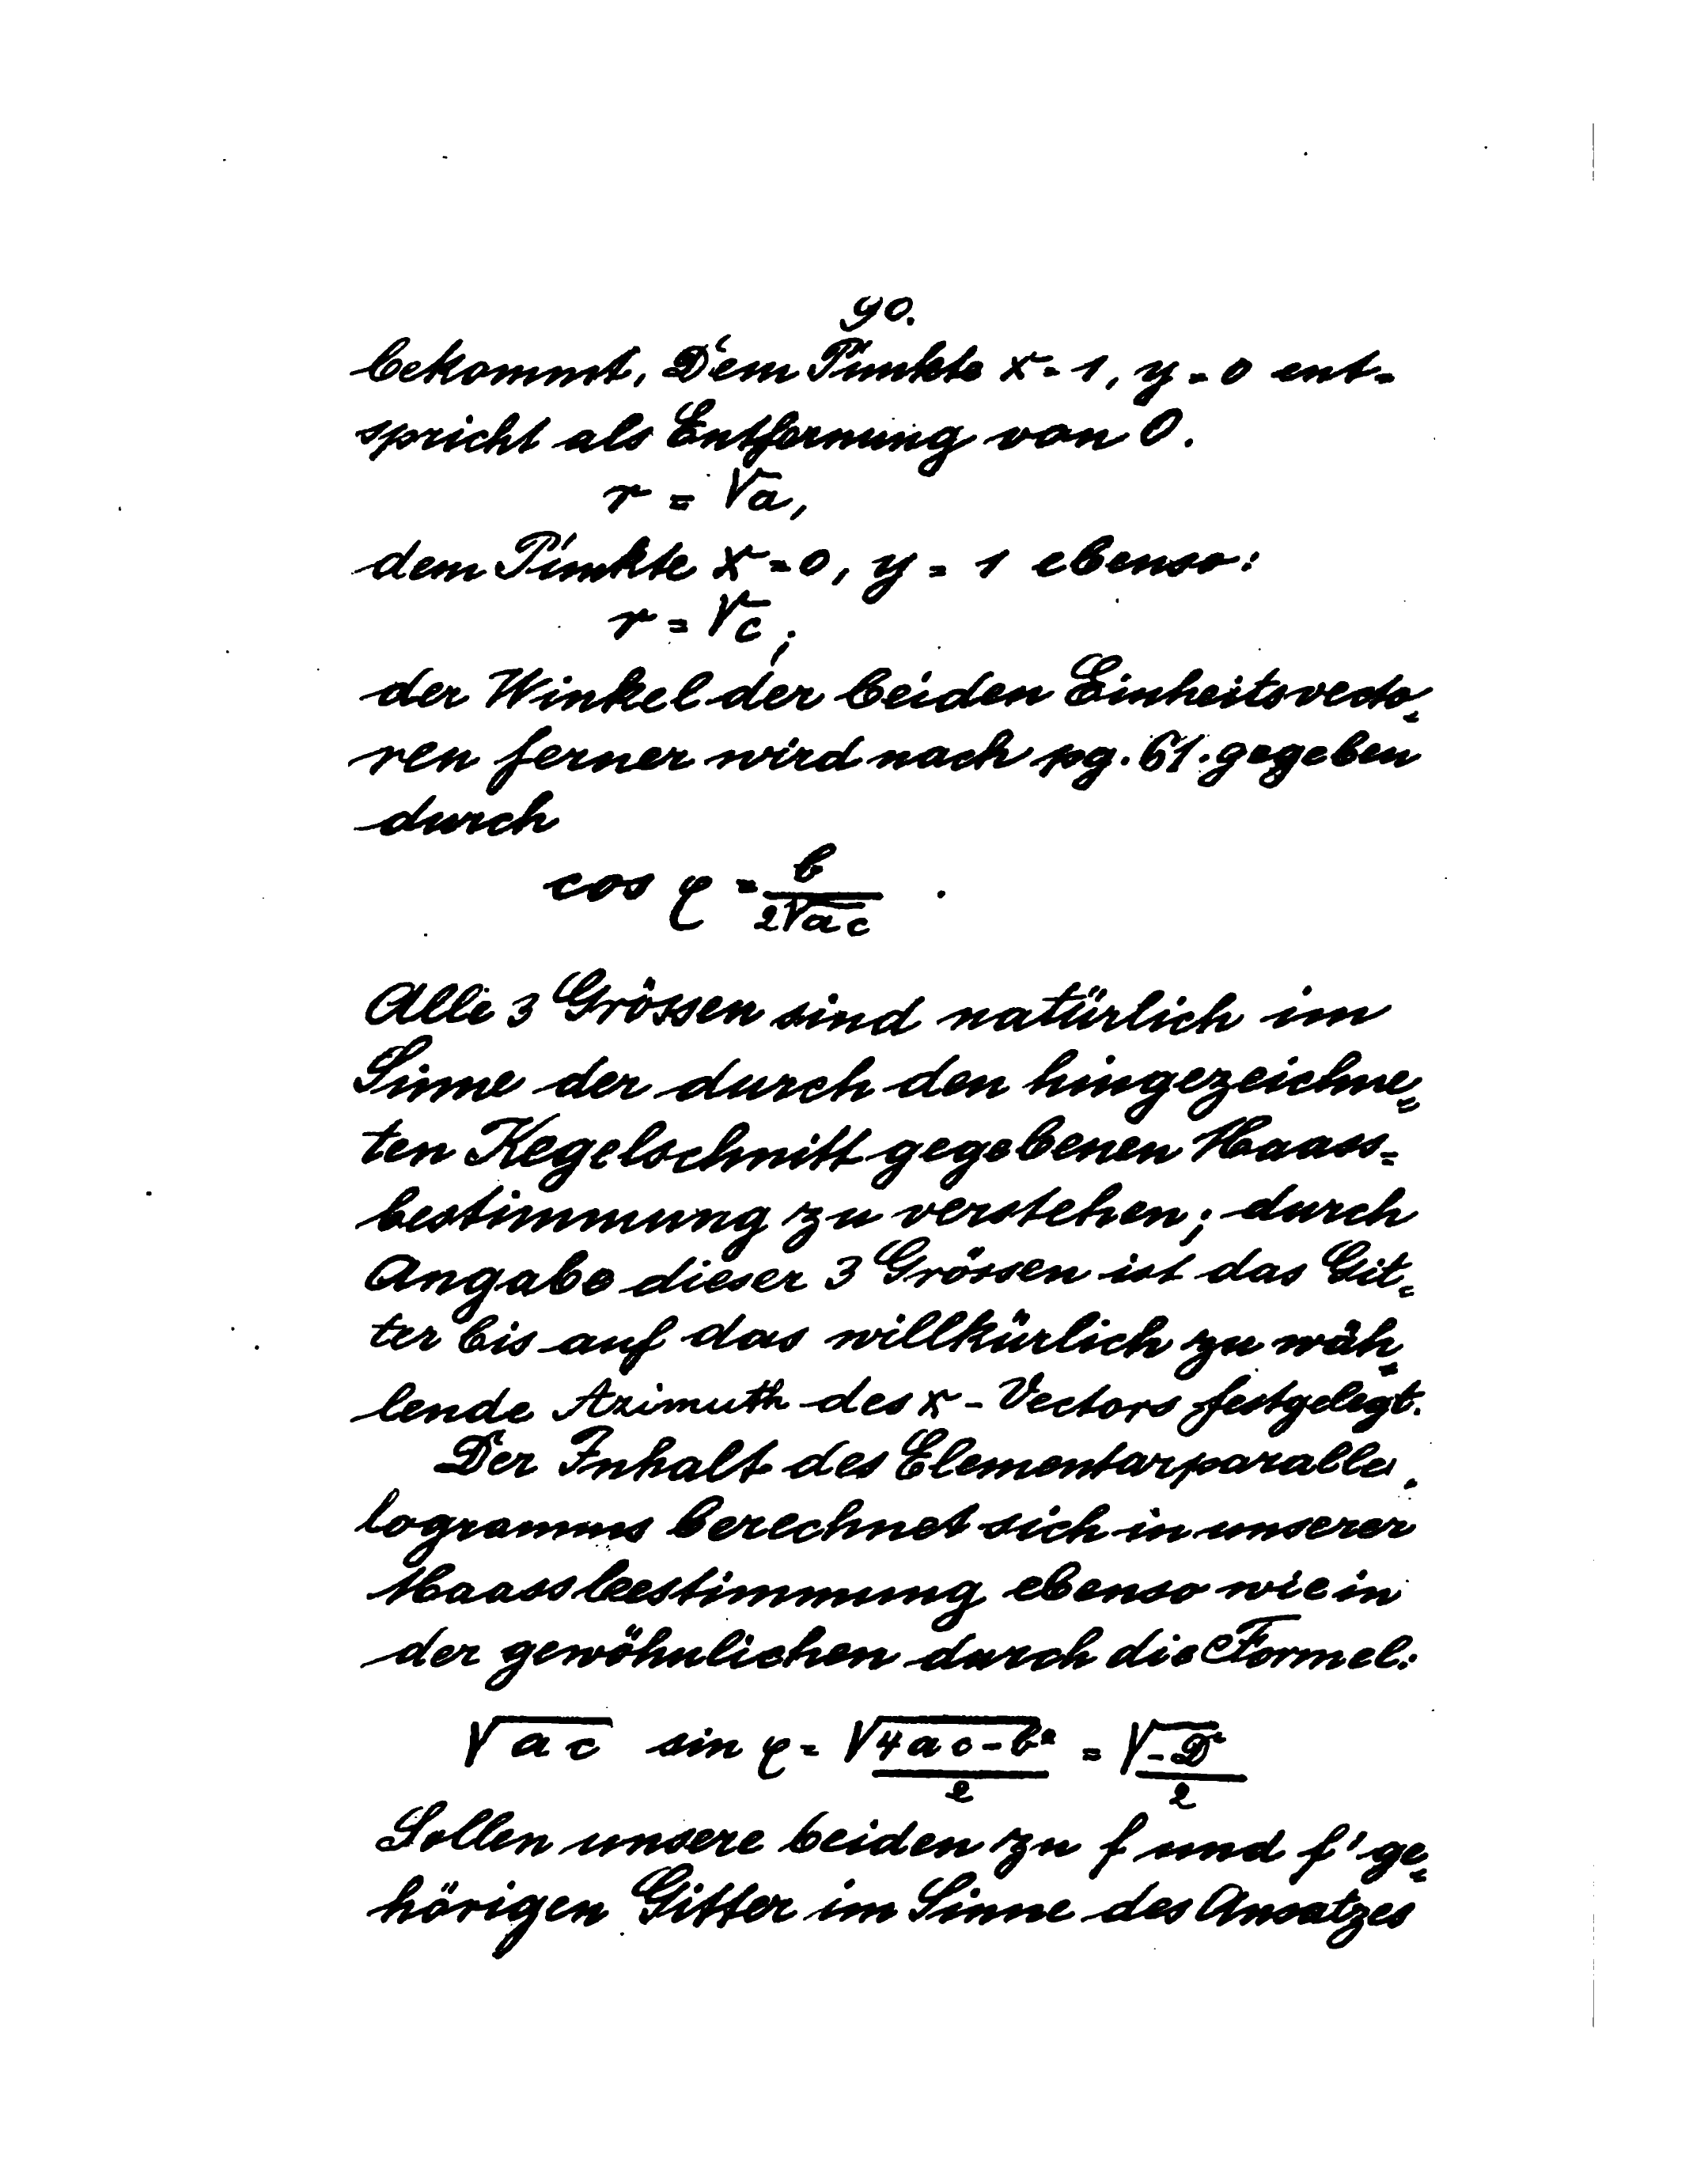 90.
bekommt. Dem Punkte x = 1, y = 0 ent-
spricht als Entfernung von O.
r = √a,
dem Punkte x = 0, y = 1 ebenso:
r = √c;
der Winkel der beiden Einheitsvecto-
ren ferner wird nach pg. 61. gegeben
durch
cos φ = b / 2√ac .
Alle 3 Grössen sind natürlich im
Sinne der durch den hingezeichne-
ten Kegelschnitt gegebenen Maass-
bestimmung zu verstehen; durch
Angabe dieser 3 Grössen ist das Git-
ter bis auf das willkürlich zu wäh-
lende Azimuth des x-Vectors festgelegt.
Der Inhalt des Elementarparalle-
logramms berechnet sich in unserer
Maassbestimmung ebenso wie in
der gewöhnlichen durch die Formel:
√ac sin φ = √4ac-b² / 2 = √-D / 2
Sollen unsere beiden zu f und f' ge-
hörigen Gitter im Sinne des Ansatzes